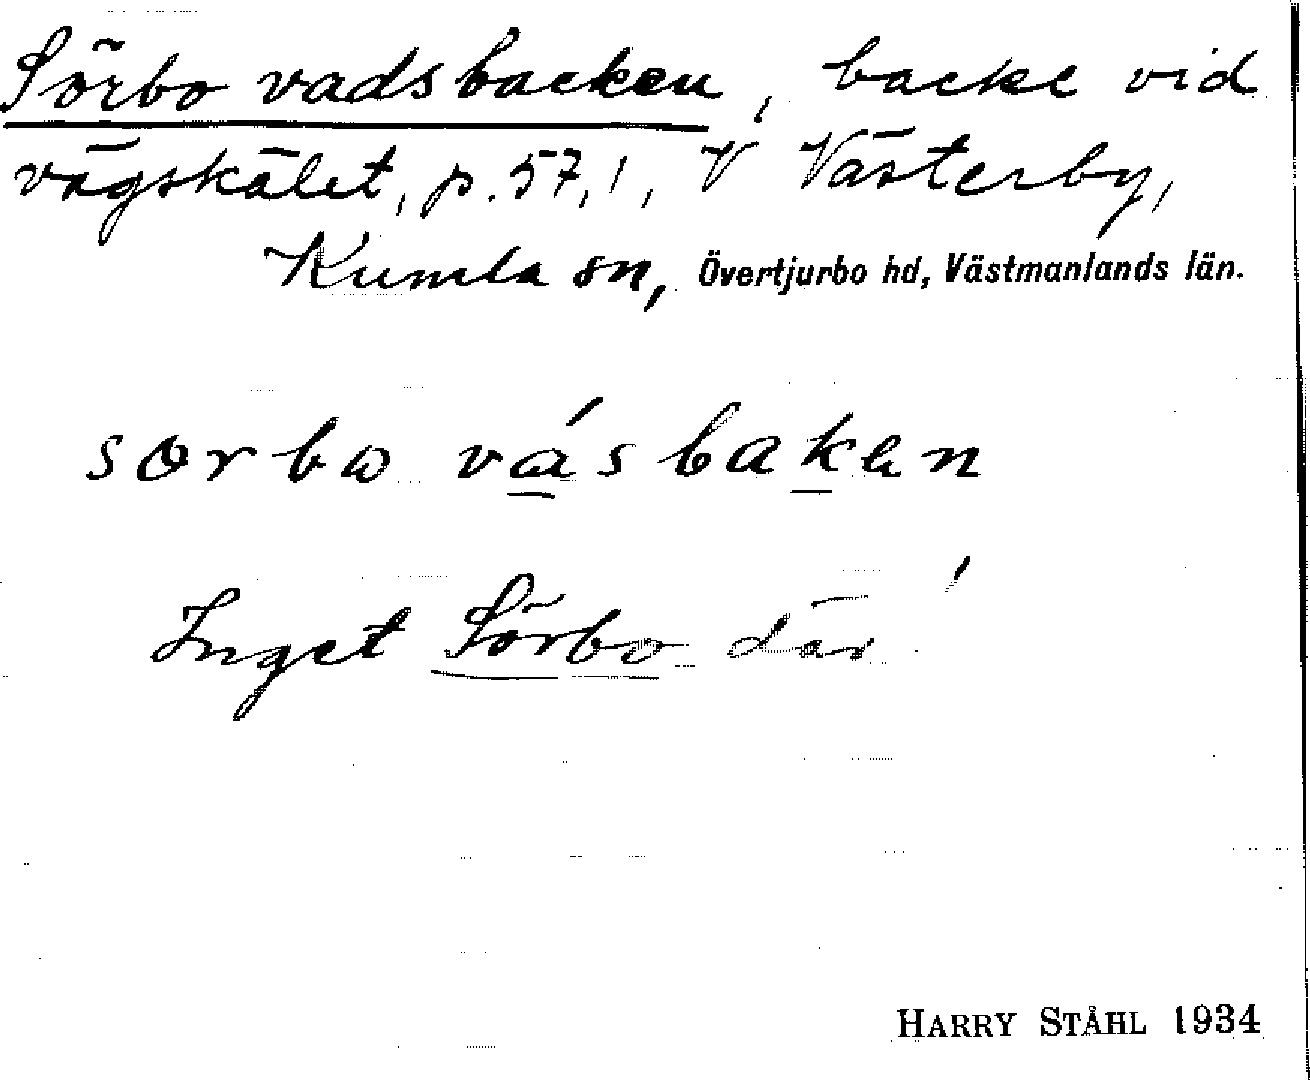 Sörbo vadsbacken, backe vid
vägskälet, p. 57,1, V Västerby,
Kumla sn, Övertjurbo hd, Västmanlands län.
sorbω vásbakan
Inget Sörbo där!
HARRY STÅHL 1934